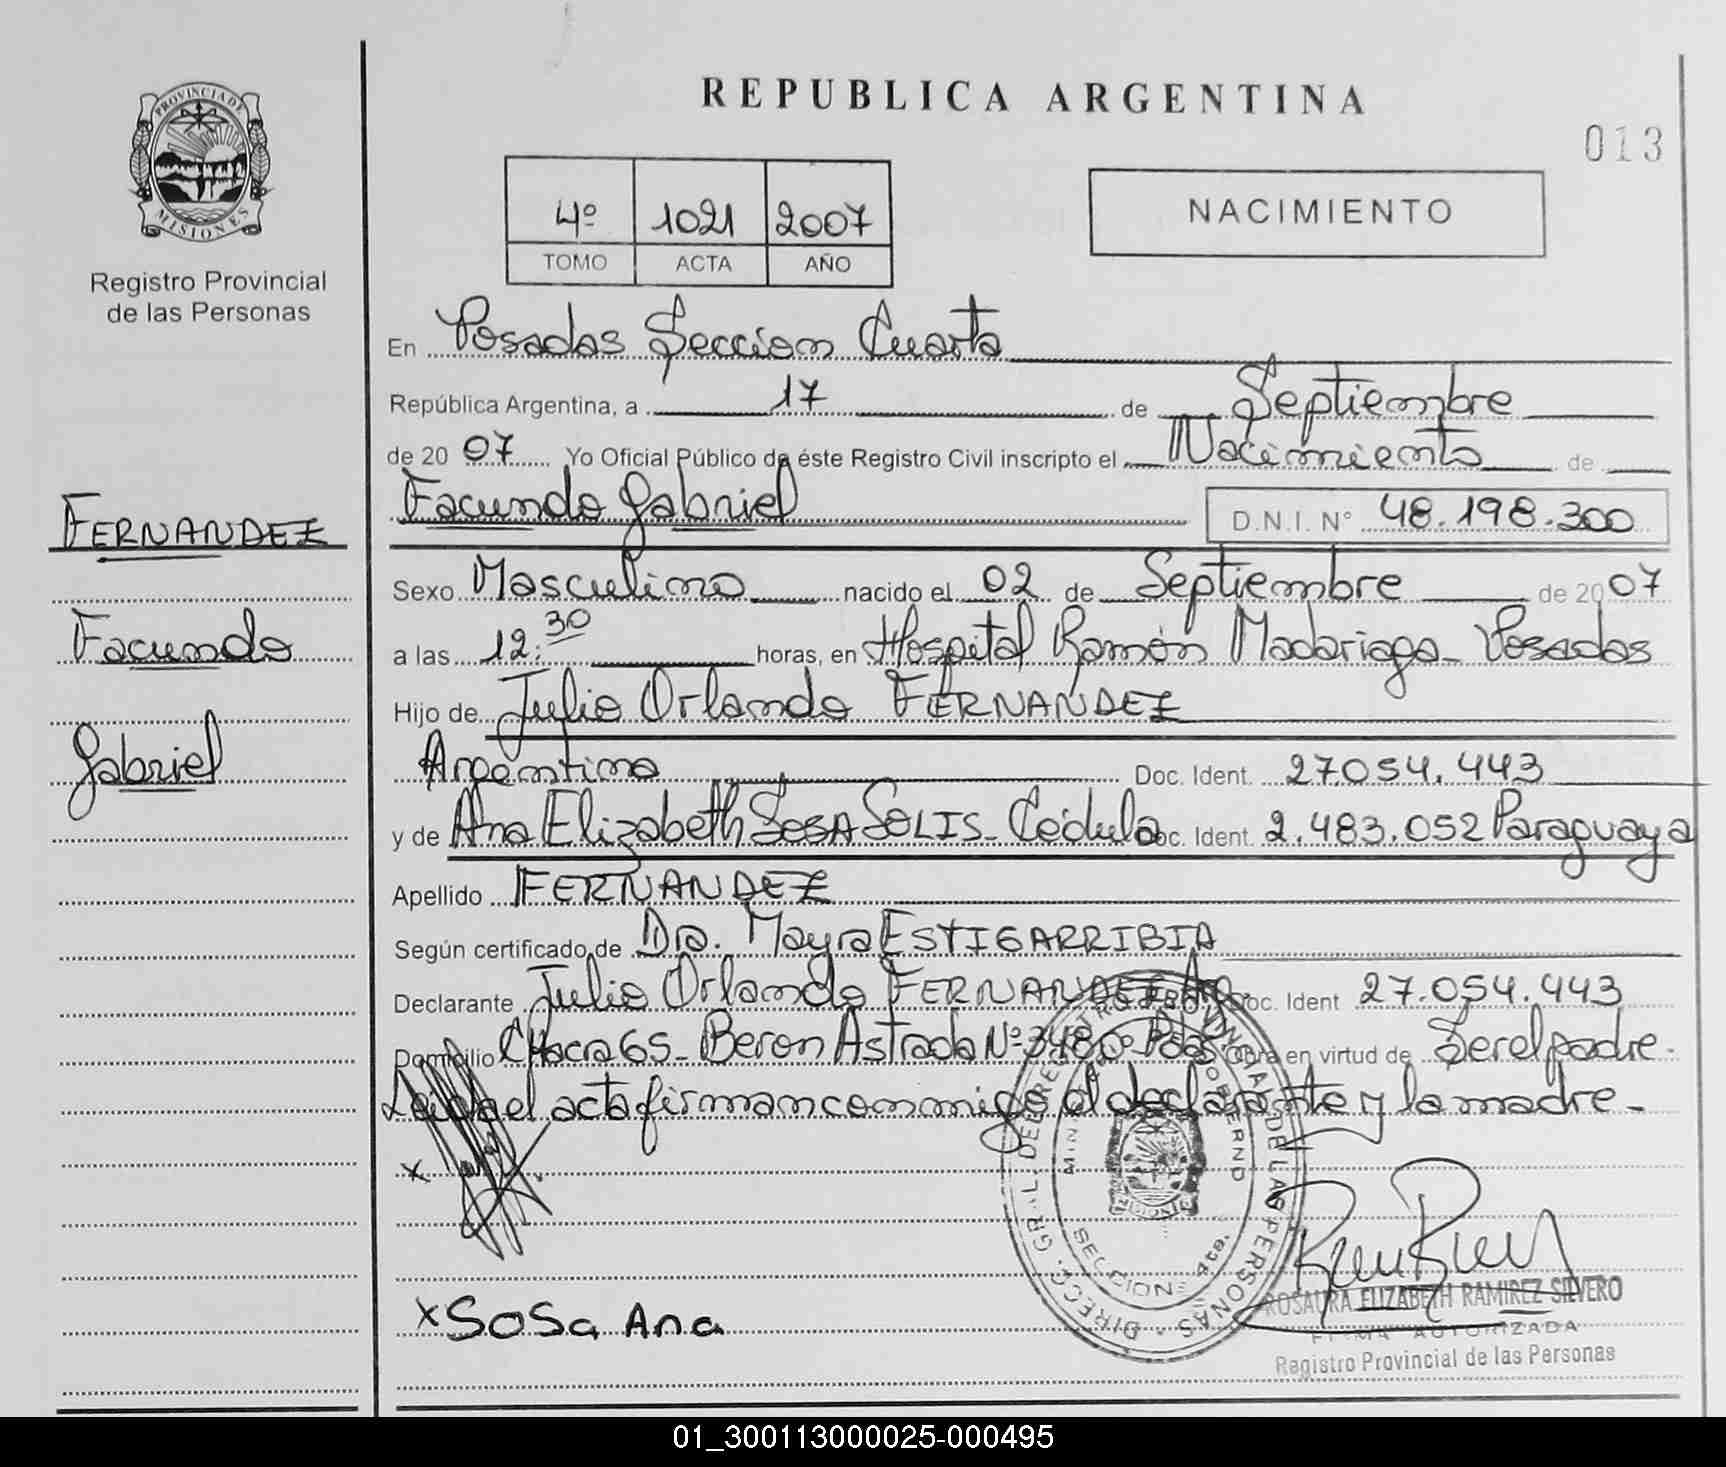 PROVINCIA DE
MISIONES
Registro Provincial
de las Personas
FERNANDEZ
Facundo
Gabriel
REPUBLICA ARGENTINA
013
4º 1021 2007
TOMO ACTA AÑO
NACIMIENTO
En Posadas Seccion Cuarta
República Argentina, a 17 de Septiembre
de 20 07 Yo Oficial Público de éste Registro Civil inscripto el Nacimiento de
Facundo Gabriel D.N.I. Nº 48.198.300
Sexo Masculino nacido el 02 de Septiembre de 2007
a las 12:30 horas, en Hospital Ramón Madariaga - Posadas
Hijo de Julio Orlando FERNANDEZ
Argentino Doc. Ident. 27.054.443
y de Ana Elizabeth SOSA SOLIS - Cédula Doc. Ident. 2.483.052 Paraguaya
Apellido FERNANDEZ
Según certificado de Dra. Mayra ESTIGARRIBIA
Declarante Julio Orlando FERNANDEZ Doc. Ident 27.054.443
Domicilio CHacra 65 - Beron Astrada Nº 3480 Pdas Obra en virtud de Ser el padre.
Leida el acta firman conmigo el declarante y la madre -
x
x SOSa Ana
DIRECC. GRAL. DEL REGISTRO PROVINCIAL DE LAS PERSONAS
SECCION 4ta.
ROSAURA ELIZABETH RAMIREZ SILVERO
FIRMA AUTORIZADA
Registro Provincial de las Personas
01_300113000025-000495